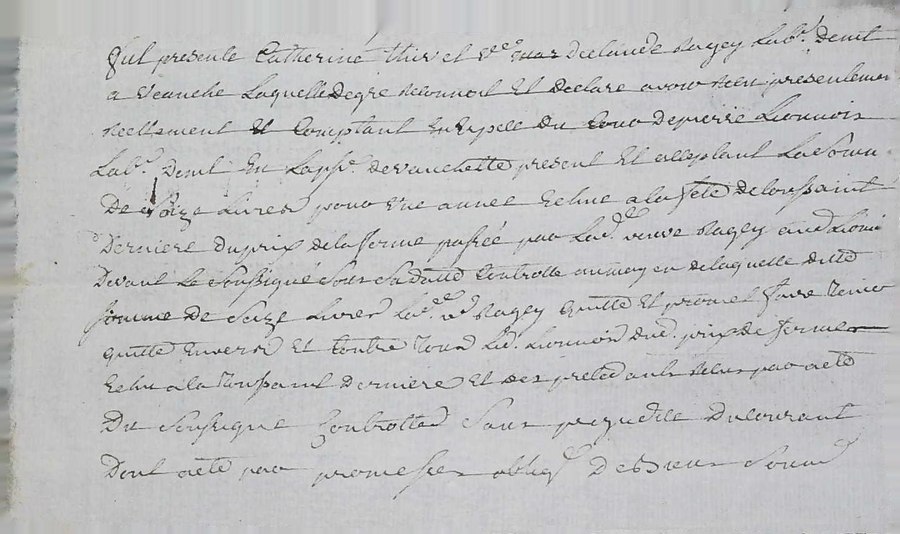 fut presente Catherine thivel v.ve declaude Ragey Lab.r demt
a veauche Laquelle degre reconnoit Et declare avoir reeu presentement
reellement Et Comptant En Espece du Cour depierre Lionnois
Lab.r demt En Lapss.e deveauchette present Et acceptant La Som
De Seize Livres pour une année Echue a la fete de toussaint
Derniere Du prix de la ferme passée par Lad.e veuve Ragey aud Lionn
Devant Le Soussigné Sous Sa datte Controlle au moyen de laquelle ditte
Somme De Seize Livres Lad.e v.e Ragey quitte Et promet faire tenir
quitte Envers Et Contre tous Led. Lionnois dud. prix de ferme
Echu a la toussaint Derniere Et des precedants par acte
Du Soussigné Controlles Sans du Courant
Dont acte par promesses oblig.